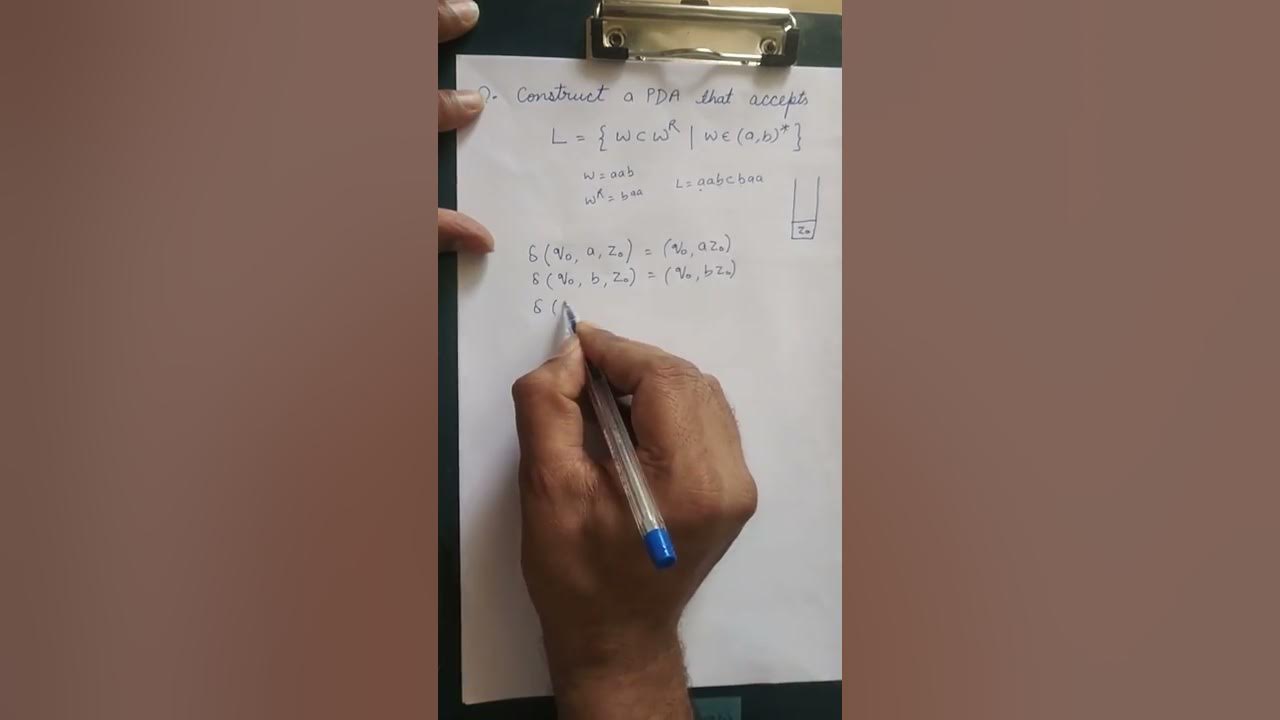 Q. Construct a PDA that accepts
L = { wcwᴿ | w ∈ (a,b)* }
w = aab
wᴿ = baa
L = aabcbaa
z₀
δ(q₀, a, z₀) = (q₀, az₀)
δ(q₀, b, z₀) = (q₀, bz₀)
δ (